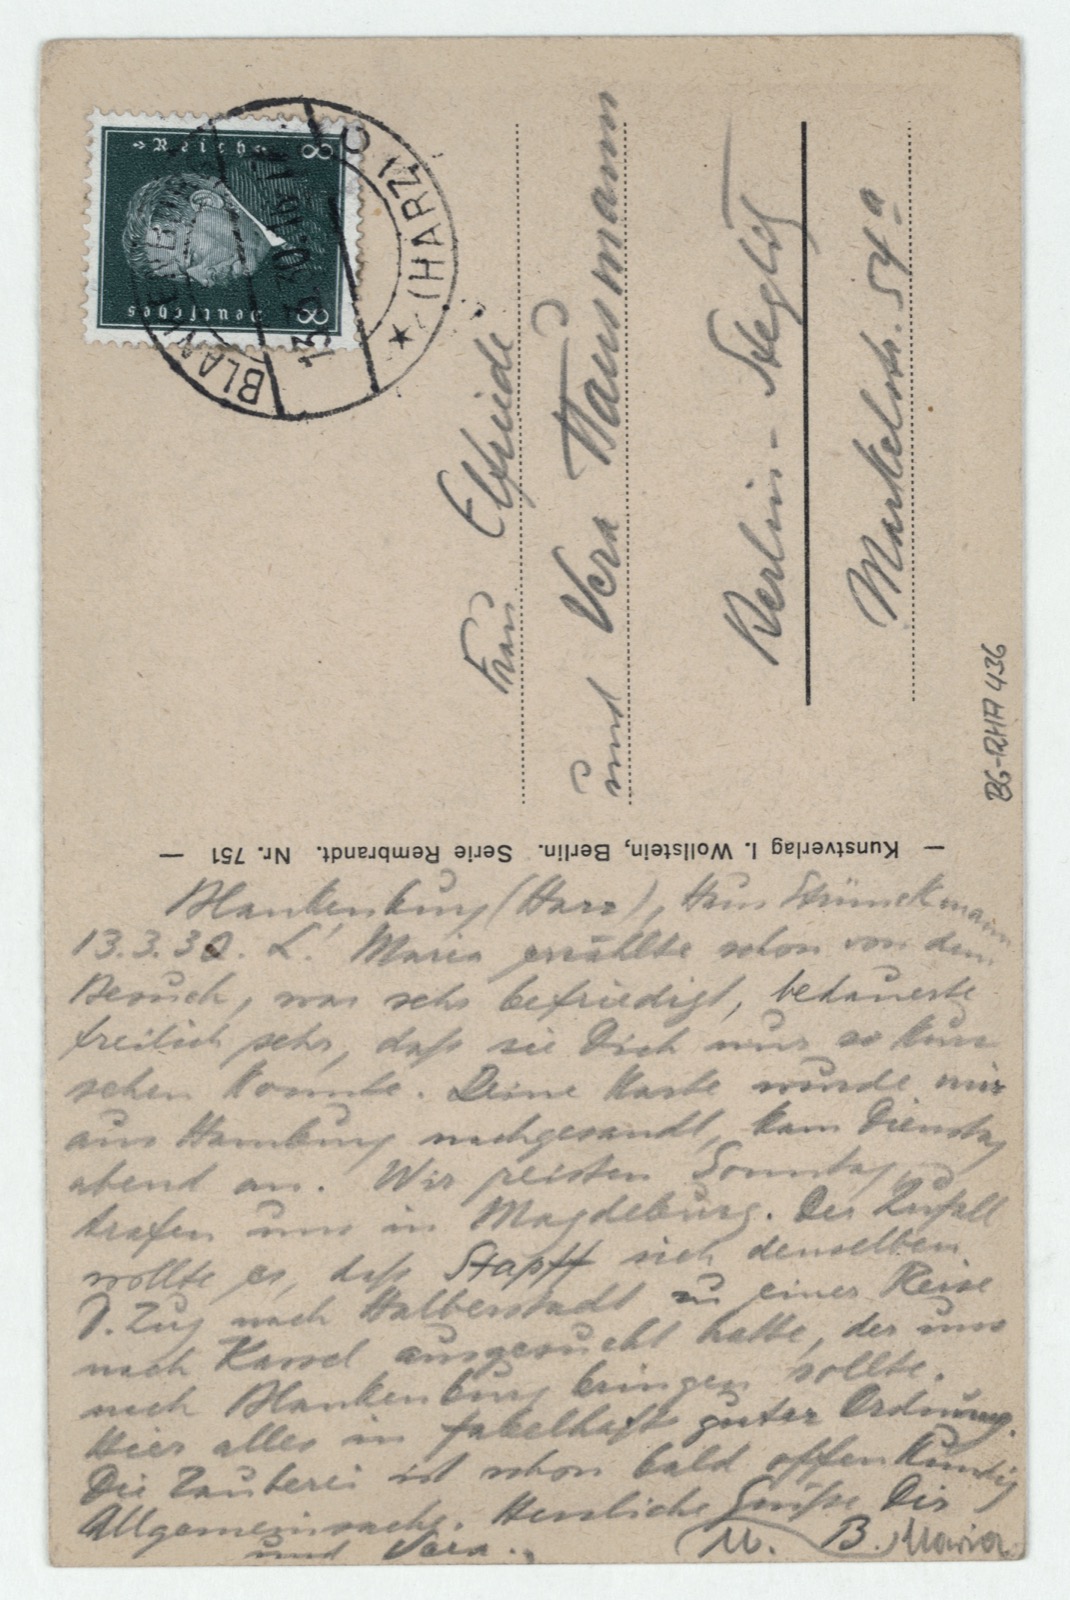 Deutsches Reich
8 8
BLANKENBURG (HARZ)
13.3.30.
Frau Elfriede
und Vera Hausmann
Berlin-Steglitz
Markelstr. 54a
BG-RHA 436
— Kunstverlag I. Wollstein, Berlin. Serie Rembrandt. Nr. 751 —
Blankenburg (Harz), Haus Stünckmann
13.3.30. L! Maria erzählte schon von dem
Besuch, war sehr befriedigt, bedauerte
freilich sehr, daß sie Dich nur so kurz
sehen konnte. Deine Karte wurde mir
aus Hamburg nachgesandt, kam Dienstag
abend an. Wir reisten Sonntag,
trafen uns in Magdeburg. Der Zufall
wollte es, daß Stapff sich denselben
D.Zug nach Halberstadt zu einer Reise
nach Kassel ausgesucht hatte, der uns
nach Blankenburg bringen sollte.
Hier alles in fabelhaft guter Ordnung.
Die Zauberei ist schon bald offenkundig
Allgemeinsache. Herzliche Grüße Dir
und Vera. M. B. Maria